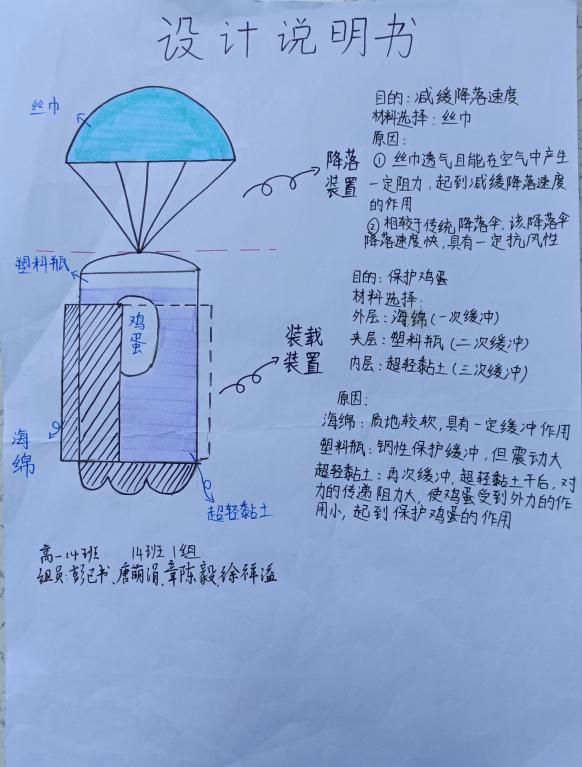 设计说明书
丝巾
目的：减缓降落速度
材料选择：丝巾
原因：
① 丝巾透气且能在空气中产生
一定阻力，起到减缓降落速度
的作用
② 相较于传统降落伞，该降落伞
降落速度快，具有一定抗风性
降落
装置
塑料瓶
鸡
蛋
海
绵
超轻黏土
装载
装置
目的：保护鸡蛋
材料选择：
外层：海绵（一次缓冲）
夹层：塑料瓶（二次缓冲）
内层：超轻黏土（三次缓冲）
原因：
海绵：质地较软，具有一定缓冲作用
塑料瓶：钢性保护缓冲，但震动大
超轻黏土：再次缓冲，超轻黏土干后，对
力的传递阻力大，使鸡蛋受到外力的作
用小，起到保护鸡蛋的作用
高一14班 14班1组
组员：彭已书、唐萌涓、章陈毅、徐祥溢